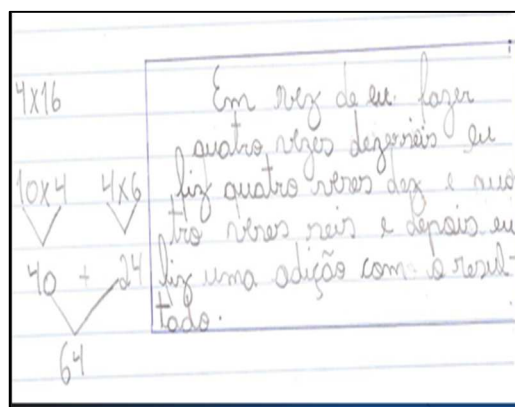 4x16
10x4 4x6
40 + 24
64
Em vez de eu fazer
quatro vezes dezerseis eu
fiz quatro veres dez e qua
tro veres seis e depois eu
fiz uma adição com o resul-
tado.